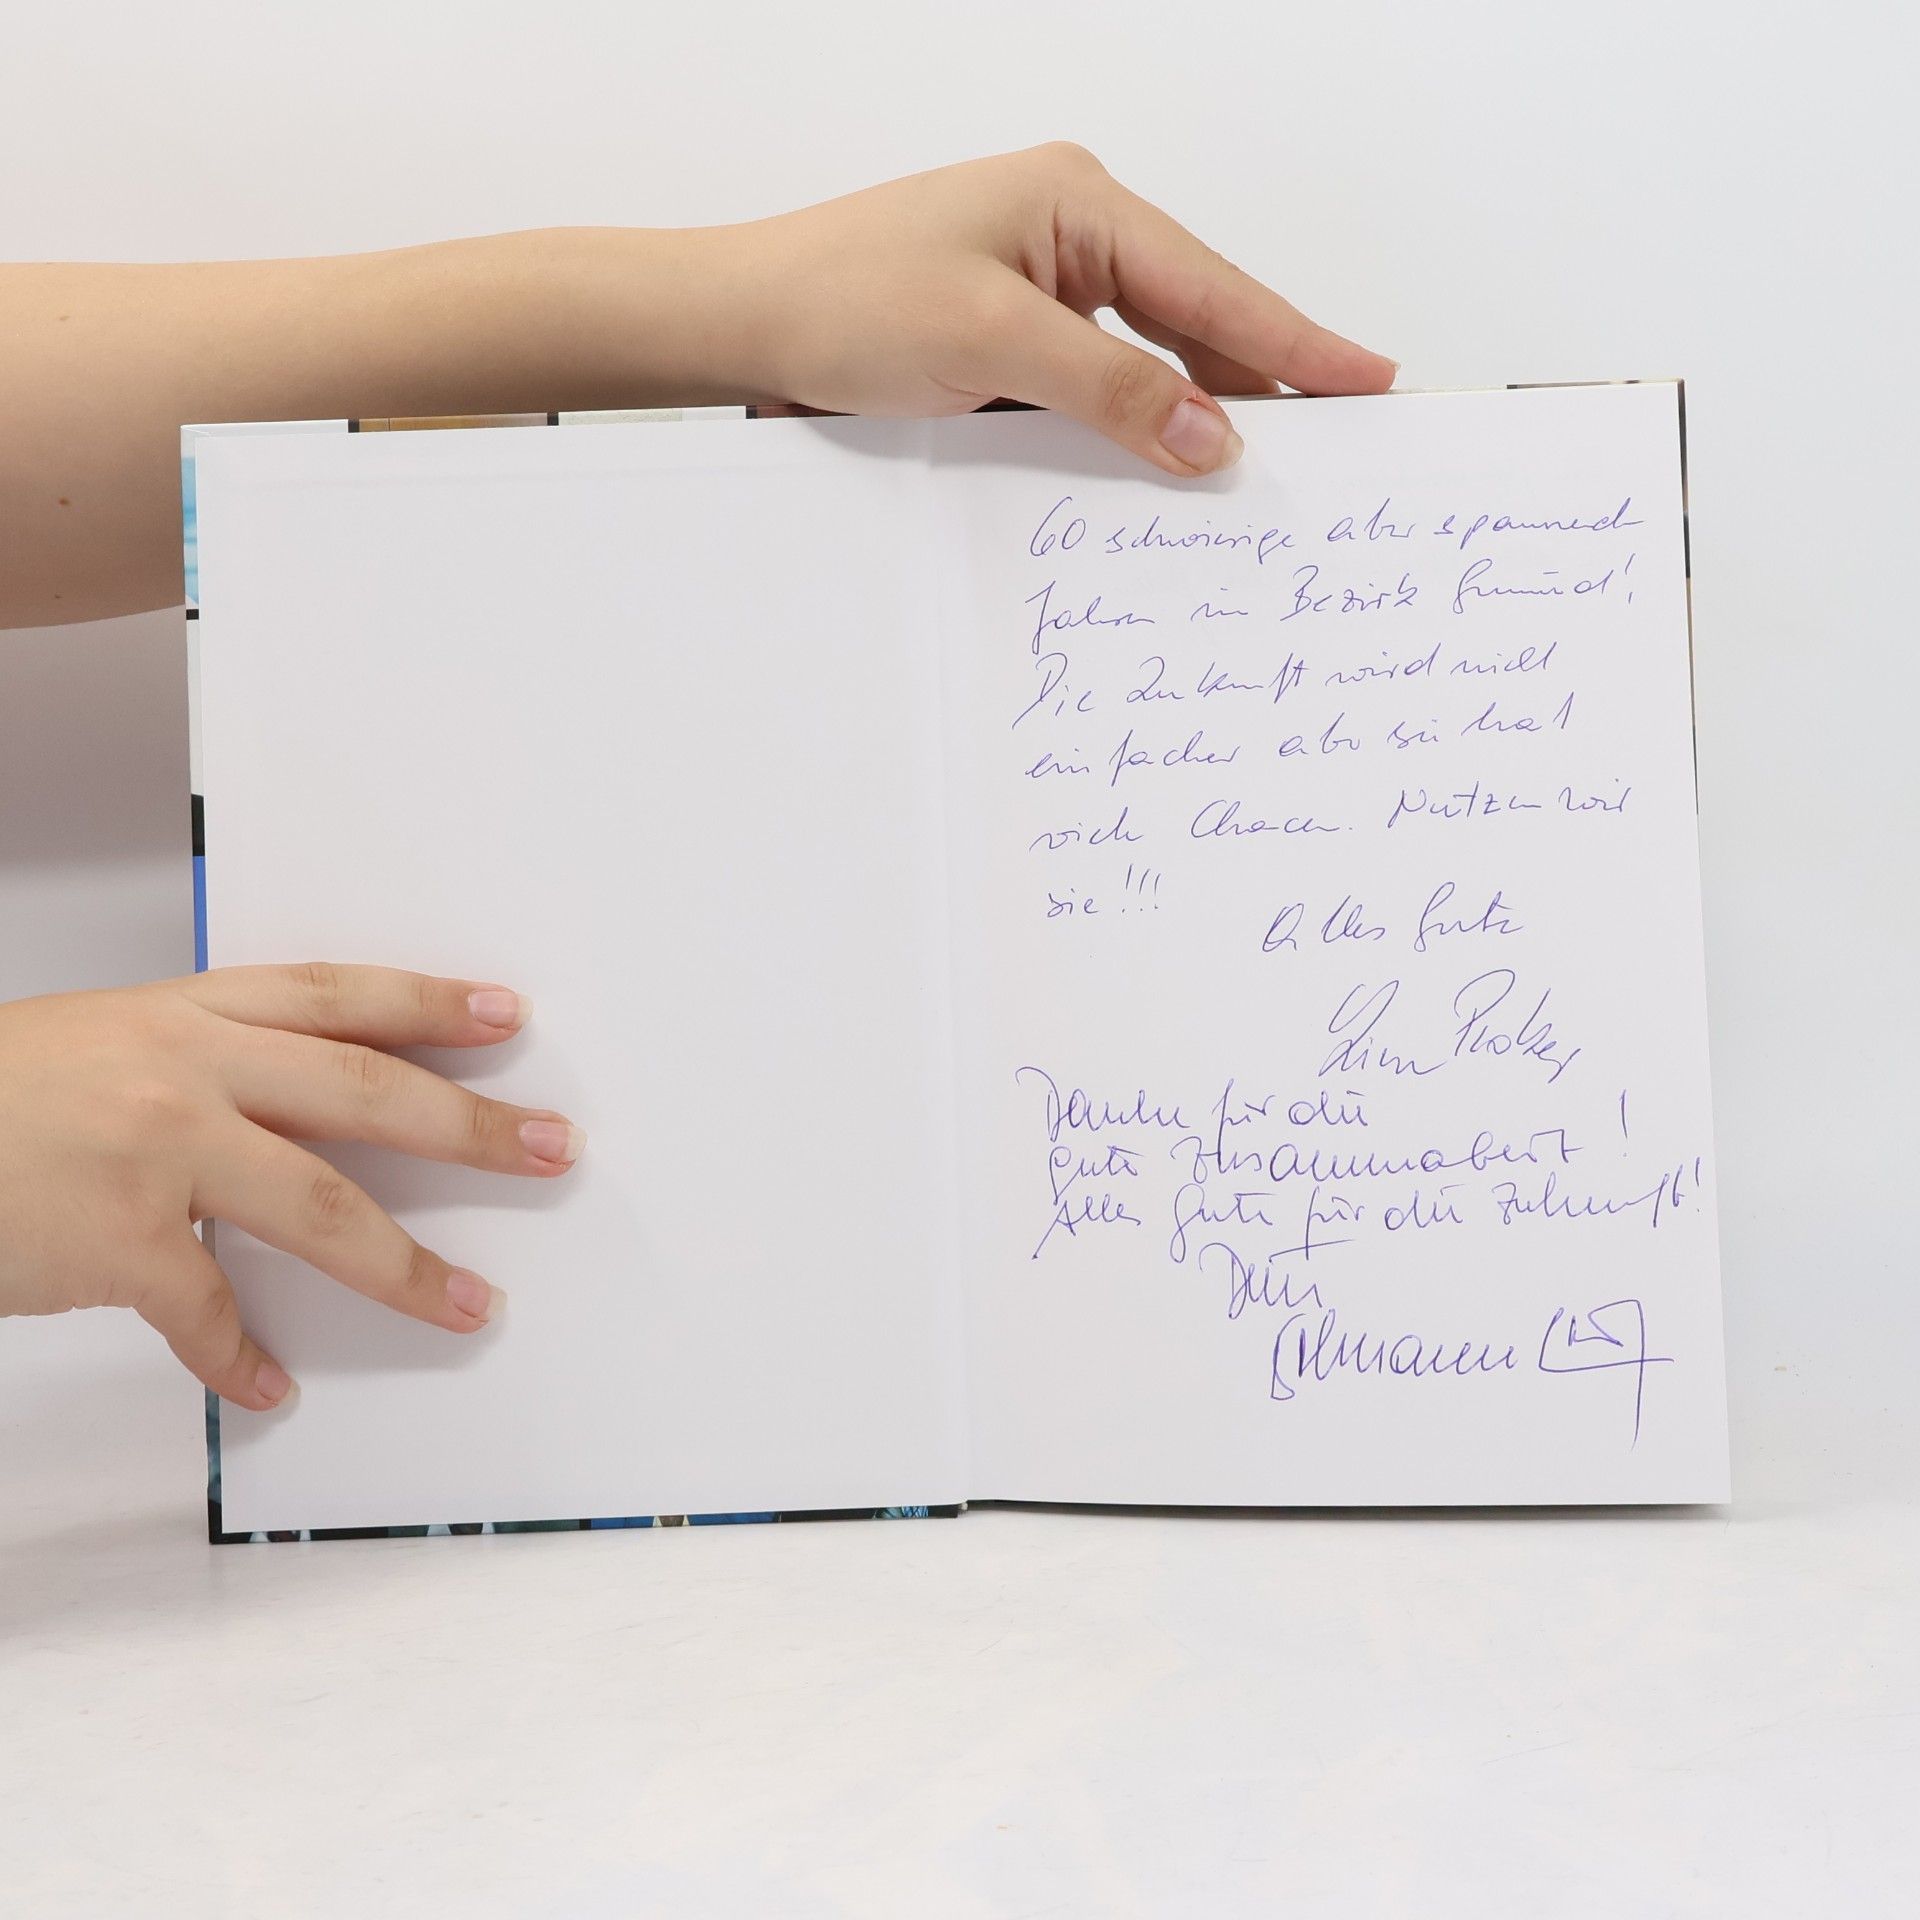 60 schwierige aber spannende
Jahre im Bezirk Gmünd!
Die Zukunft wird nicht
einfacher aber sie hat
viele Chancen. Nutzen wir
sie!!!
Alles Gute
Danke für die
gute Zusammenarbeit!
Alles Gute für die Zukunft!
Dein